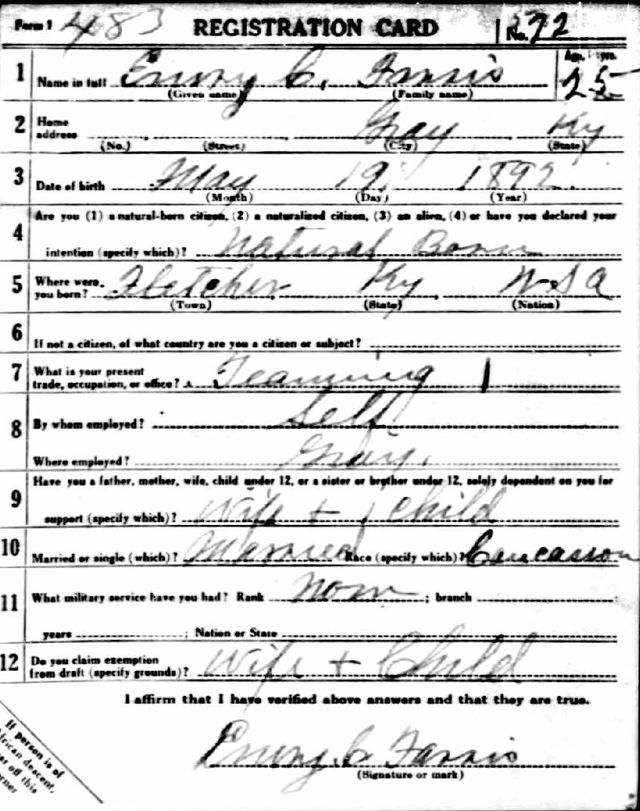 Form 1 483 REGISTRATION CARD No. 72
Age, in yrs.
1 Name in full Emory C. Farris 25
(Given name) (Family name)
2 Home address Gray Ky
(No.) (Street) (City) (State)
3 Date of birth May 19, 1892
(Month) (Day) (Year)
4 Are you (1) a natural-born citizen, (2) a naturalized citizen, (3) an alien, (4) or have you declared your
intention (specify which)? Natural Born
5 Where were you born? Fletcher Ky U S A
(Town) (State) (Nation)
6 If not a citizen, of what country are you a citizen or subject?
7 What is your present
trade, occupation, or office? Teaming
8 By whom employed? Self
Where employed? Gray.
9 Have you a father, mother, wife, child under 12, or a sister or brother under 12, solely dependent on you for
support (specify which)? Wife + 1 Child
10 Married or single (which)? Married Race (specify which)? Caucasion
11 What military service have you had? Rank ; branch
years ; Nation or State
12 Do you claim exemption
from draft (specify grounds)? Wife + Child
I affirm that I have verified above answers and that they are true.
Emory C Farris
(Signature or mark)
If person is of
African descent,
off this
corner.